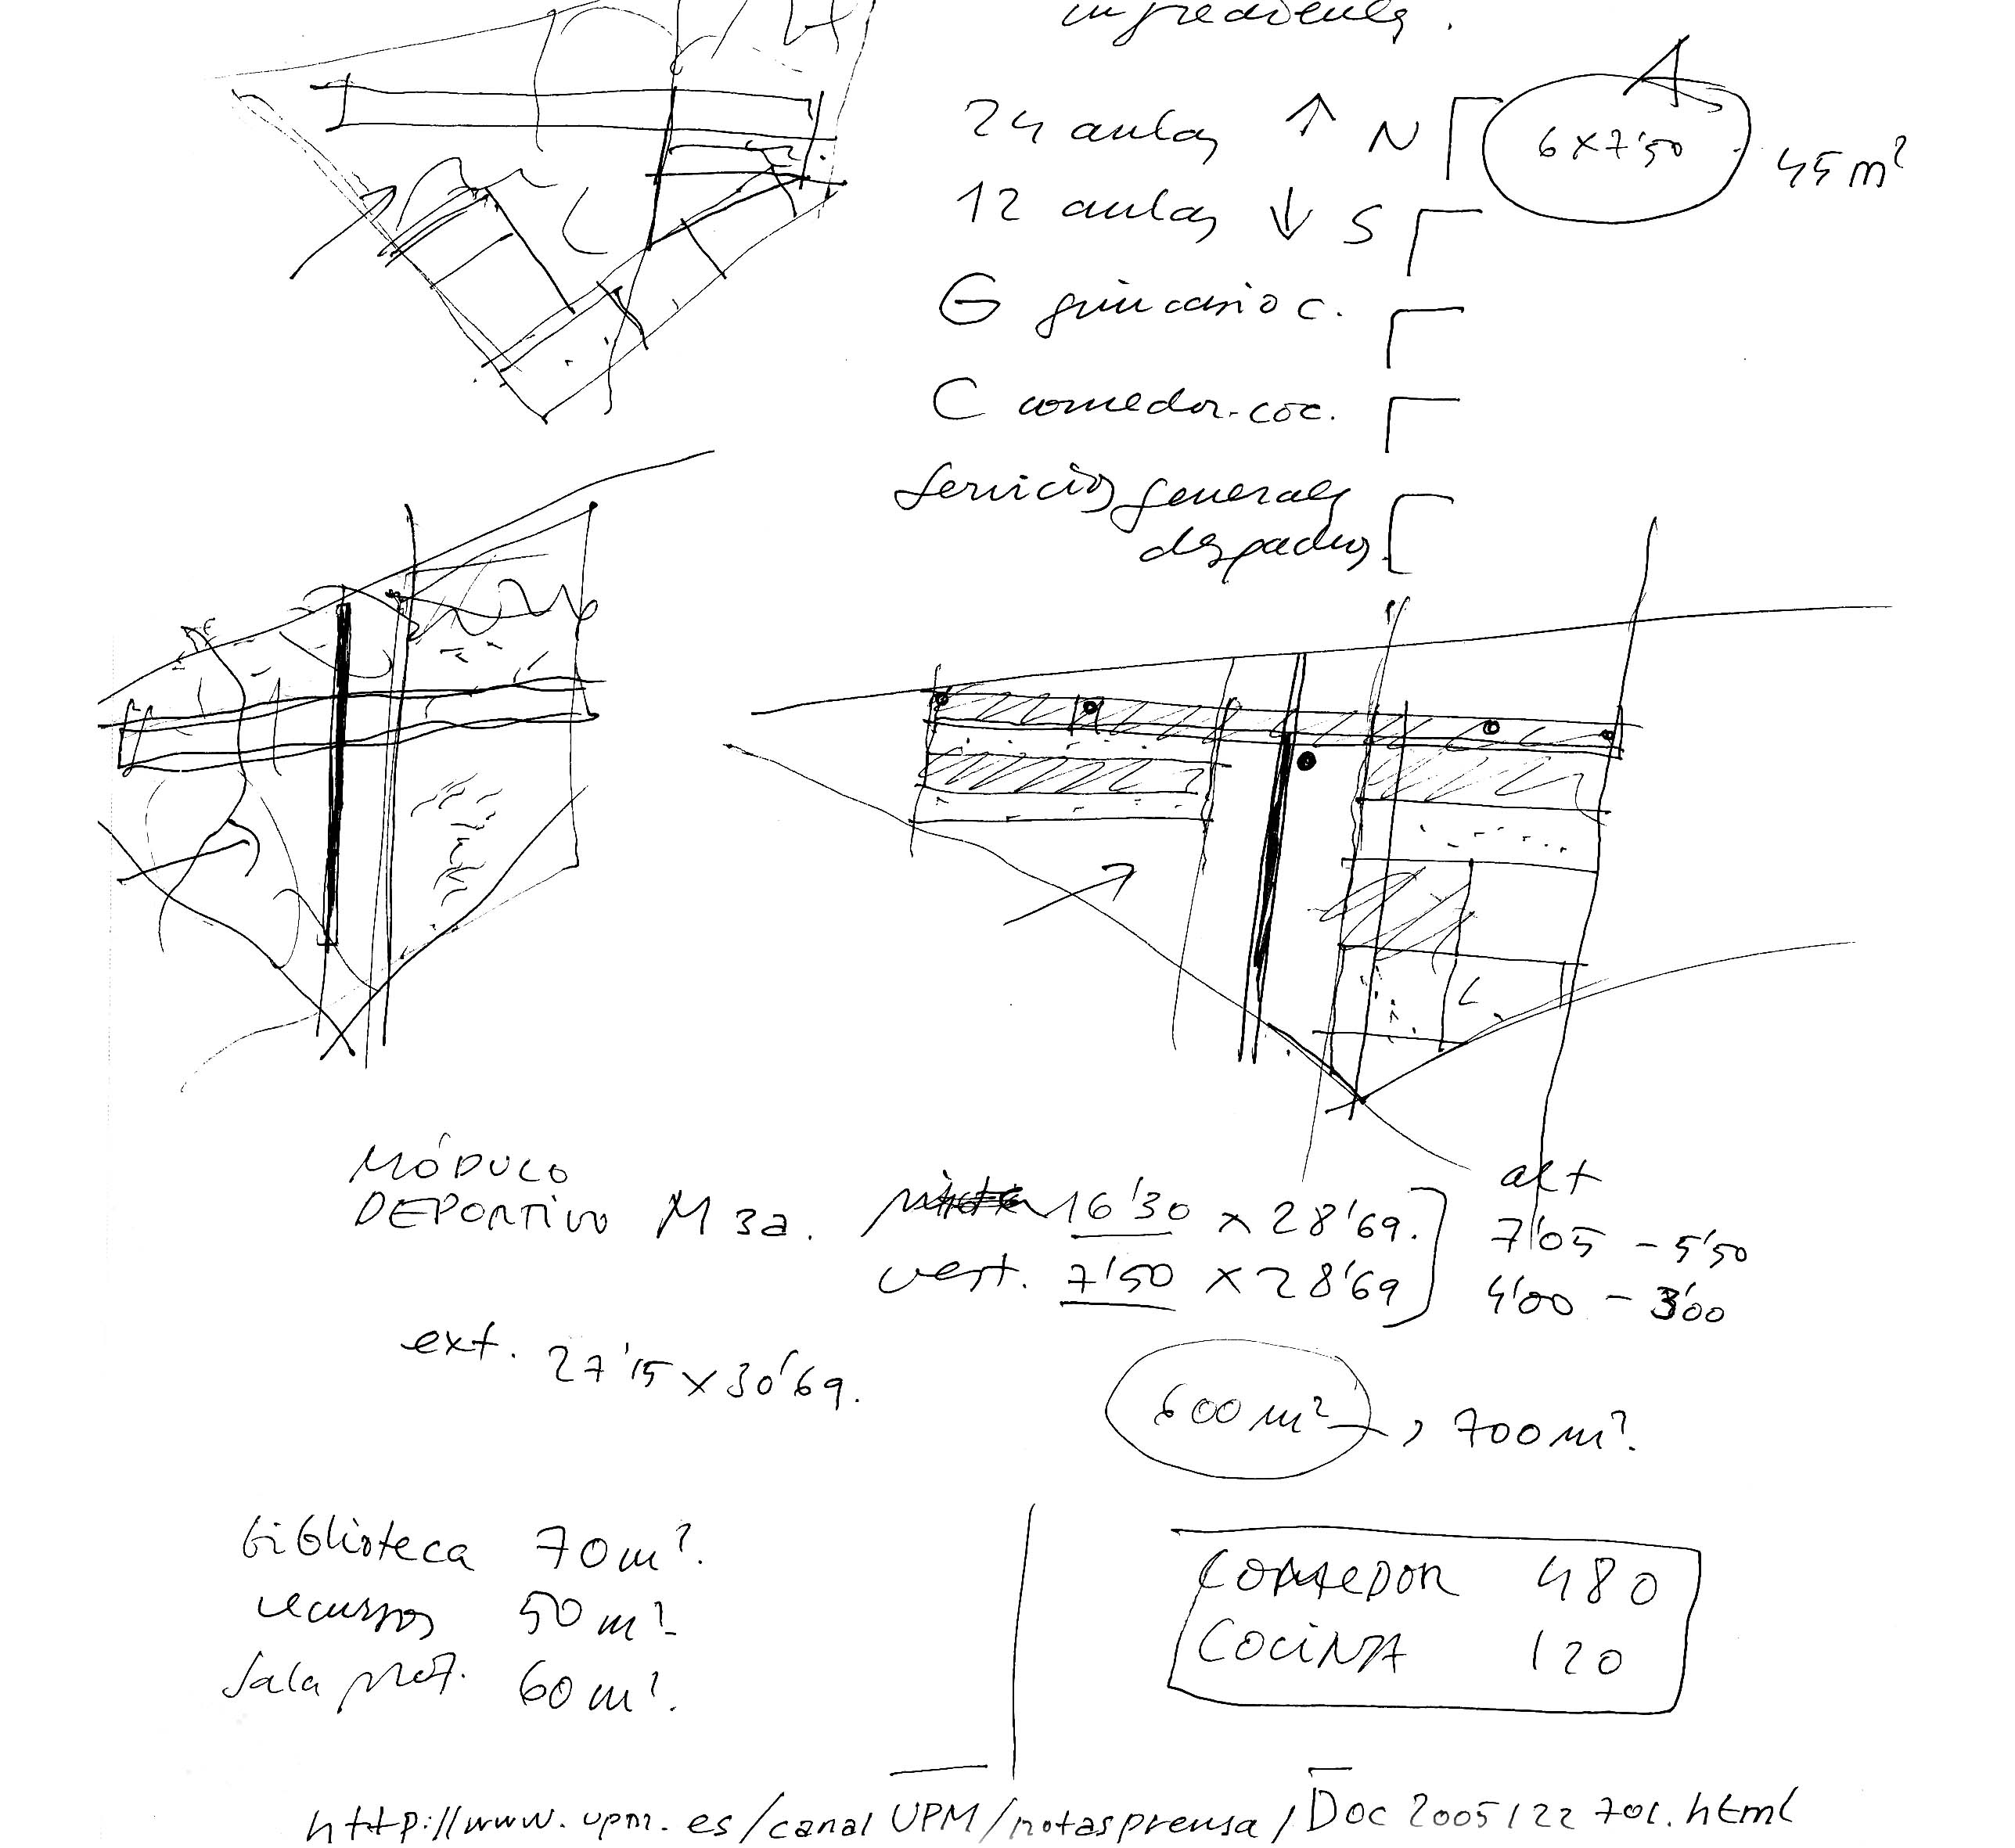 ingredientes.
A
24 aulas ↑ N 6 x 7'50 45 m²
12 aulas ↓ S
G gimnasio c.
C comedor-coc.
Servicios generales
despachos
MÓDULO
alt
DEPORTIVO M 3a. pista 16'30 x 28'69. 7'05 - 5'50
vest. 7'50 x 28'69 4'00 - 3'00
ext. 27'15 x 30'69.
600 m² 700 m².
biblioteca 70 m².
recursos 50 m²
Sala prof. 60 m².
COMEDOR 480
COCINA 120
http://www.upm.es/canalUPM/notasprensa/Doc2005122701.html